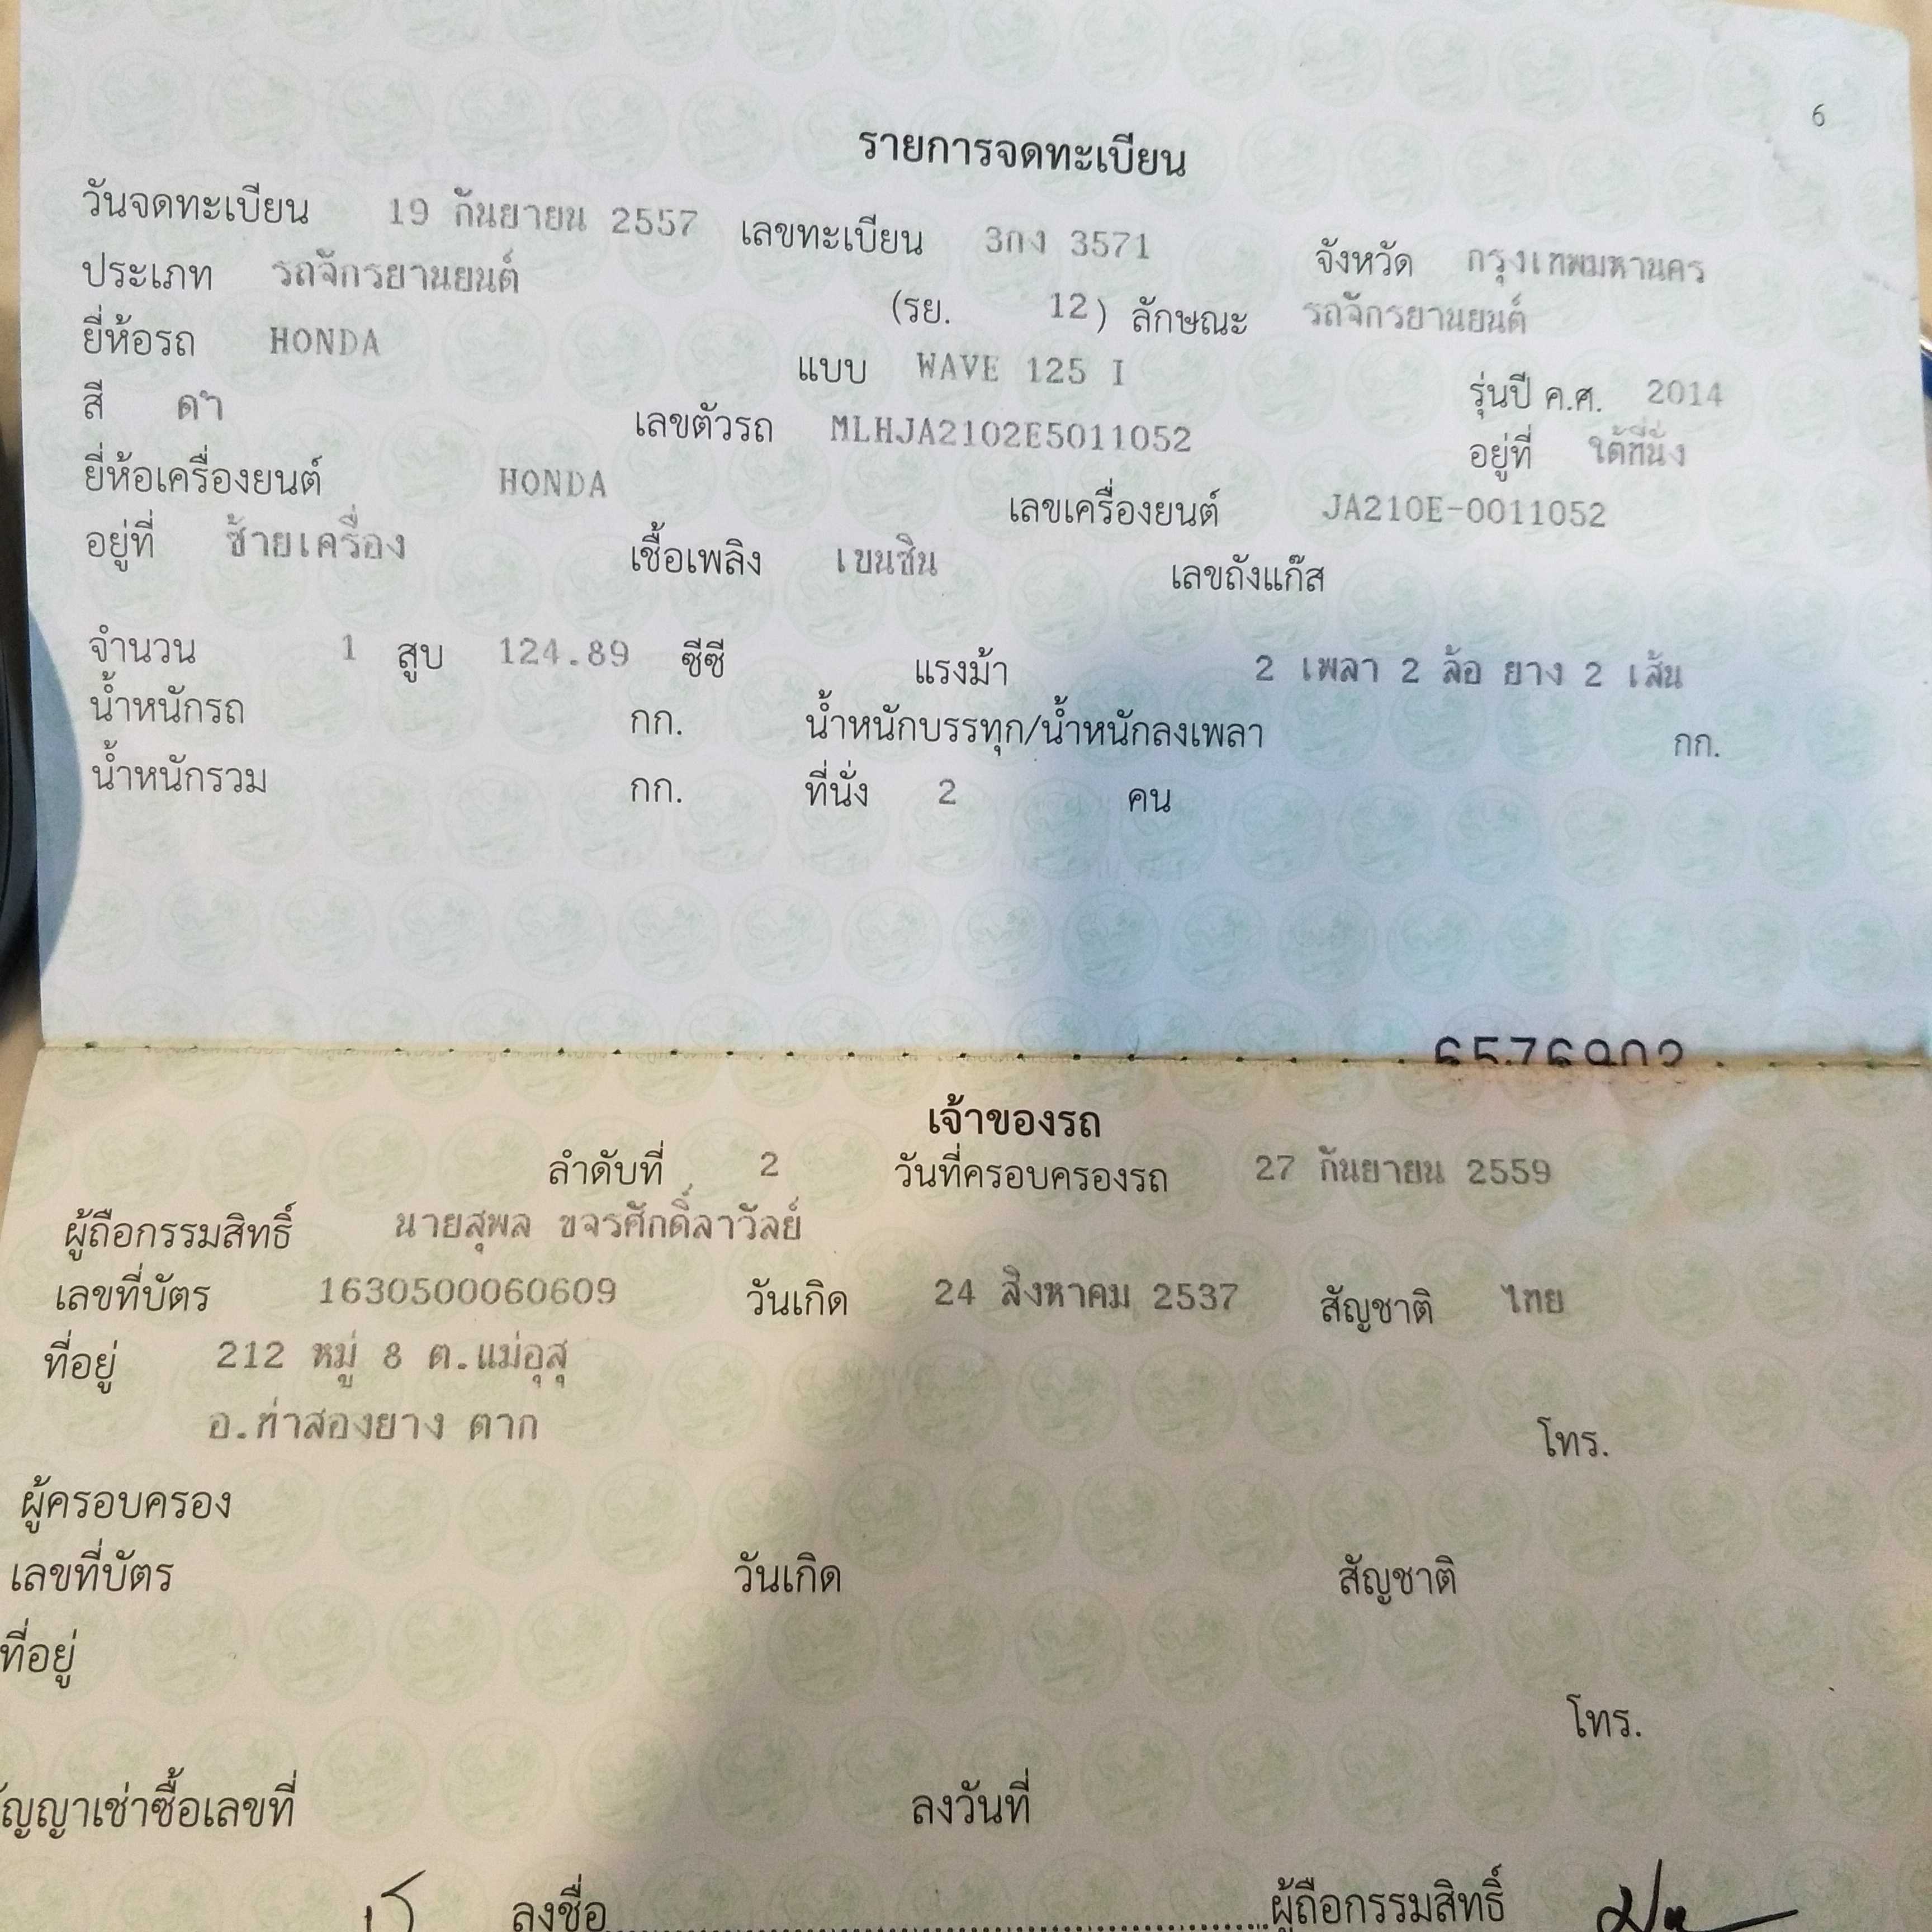 6
รายการจดทะเบียน
วันจดทะเบียน 19 กันยายน 2557 เลขทะเบียน 3กง 3571 จังหวัด กรุงเทพมหานคร
ประเภท รถจักรยานยนต์ (รย. 12) ลักษณะ รถจักรยานยนต์
ยี่ห้อรถ HONDA แบบ WAVE 125 I รุ่นปี ค.ศ. 2014
สี ดำ เลขตัวรถ MLHJA2102E5011052 อยู่ที่ ใต้ที่นั่ง
ยี่ห้อเครื่องยนต์ HONDA เลขเครื่องยนต์ JA210E-0011052
อยู่ที่ ซ้ายเครื่อง เชื้อเพลิง เบนซิน เลขถังแก๊ส
จำนวน 1 สูบ 124.89 ซีซี แรงม้า 2 เพลา 2 ล้อ ยาง 2 เส้น
น้ำหนักรถ กก. น้ำหนักบรรทุก/น้ำหนักลงเพลา กก.
น้ำหนักรวม กก. ที่นั่ง 2 คน
6576902
เจ้าของรถ
ลำดับที่ 2 วันที่ครอบครองรถ 27 กันยายน 2559
ผู้ถือกรรมสิทธิ์ นายสุพล ขจรศักดิ์ลาวัลย์
เลขที่บัตร 1630500060609 วันเกิด 24 สิงหาคม 2537 สัญชาติ ไทย
ที่อยู่ 212 หมู่ 8 ต.แม่อุสุ
อ.ท่าสองยาง ตาก
โทร.
ผู้ครอบครอง
เลขที่บัตร วันเกิด สัญชาติ
ที่อยู่
โทร.
สัญญาเช่าซื้อเลขที่ ลงวันที่
ลงชื่อ ผู้ถือกรรมสิทธิ์